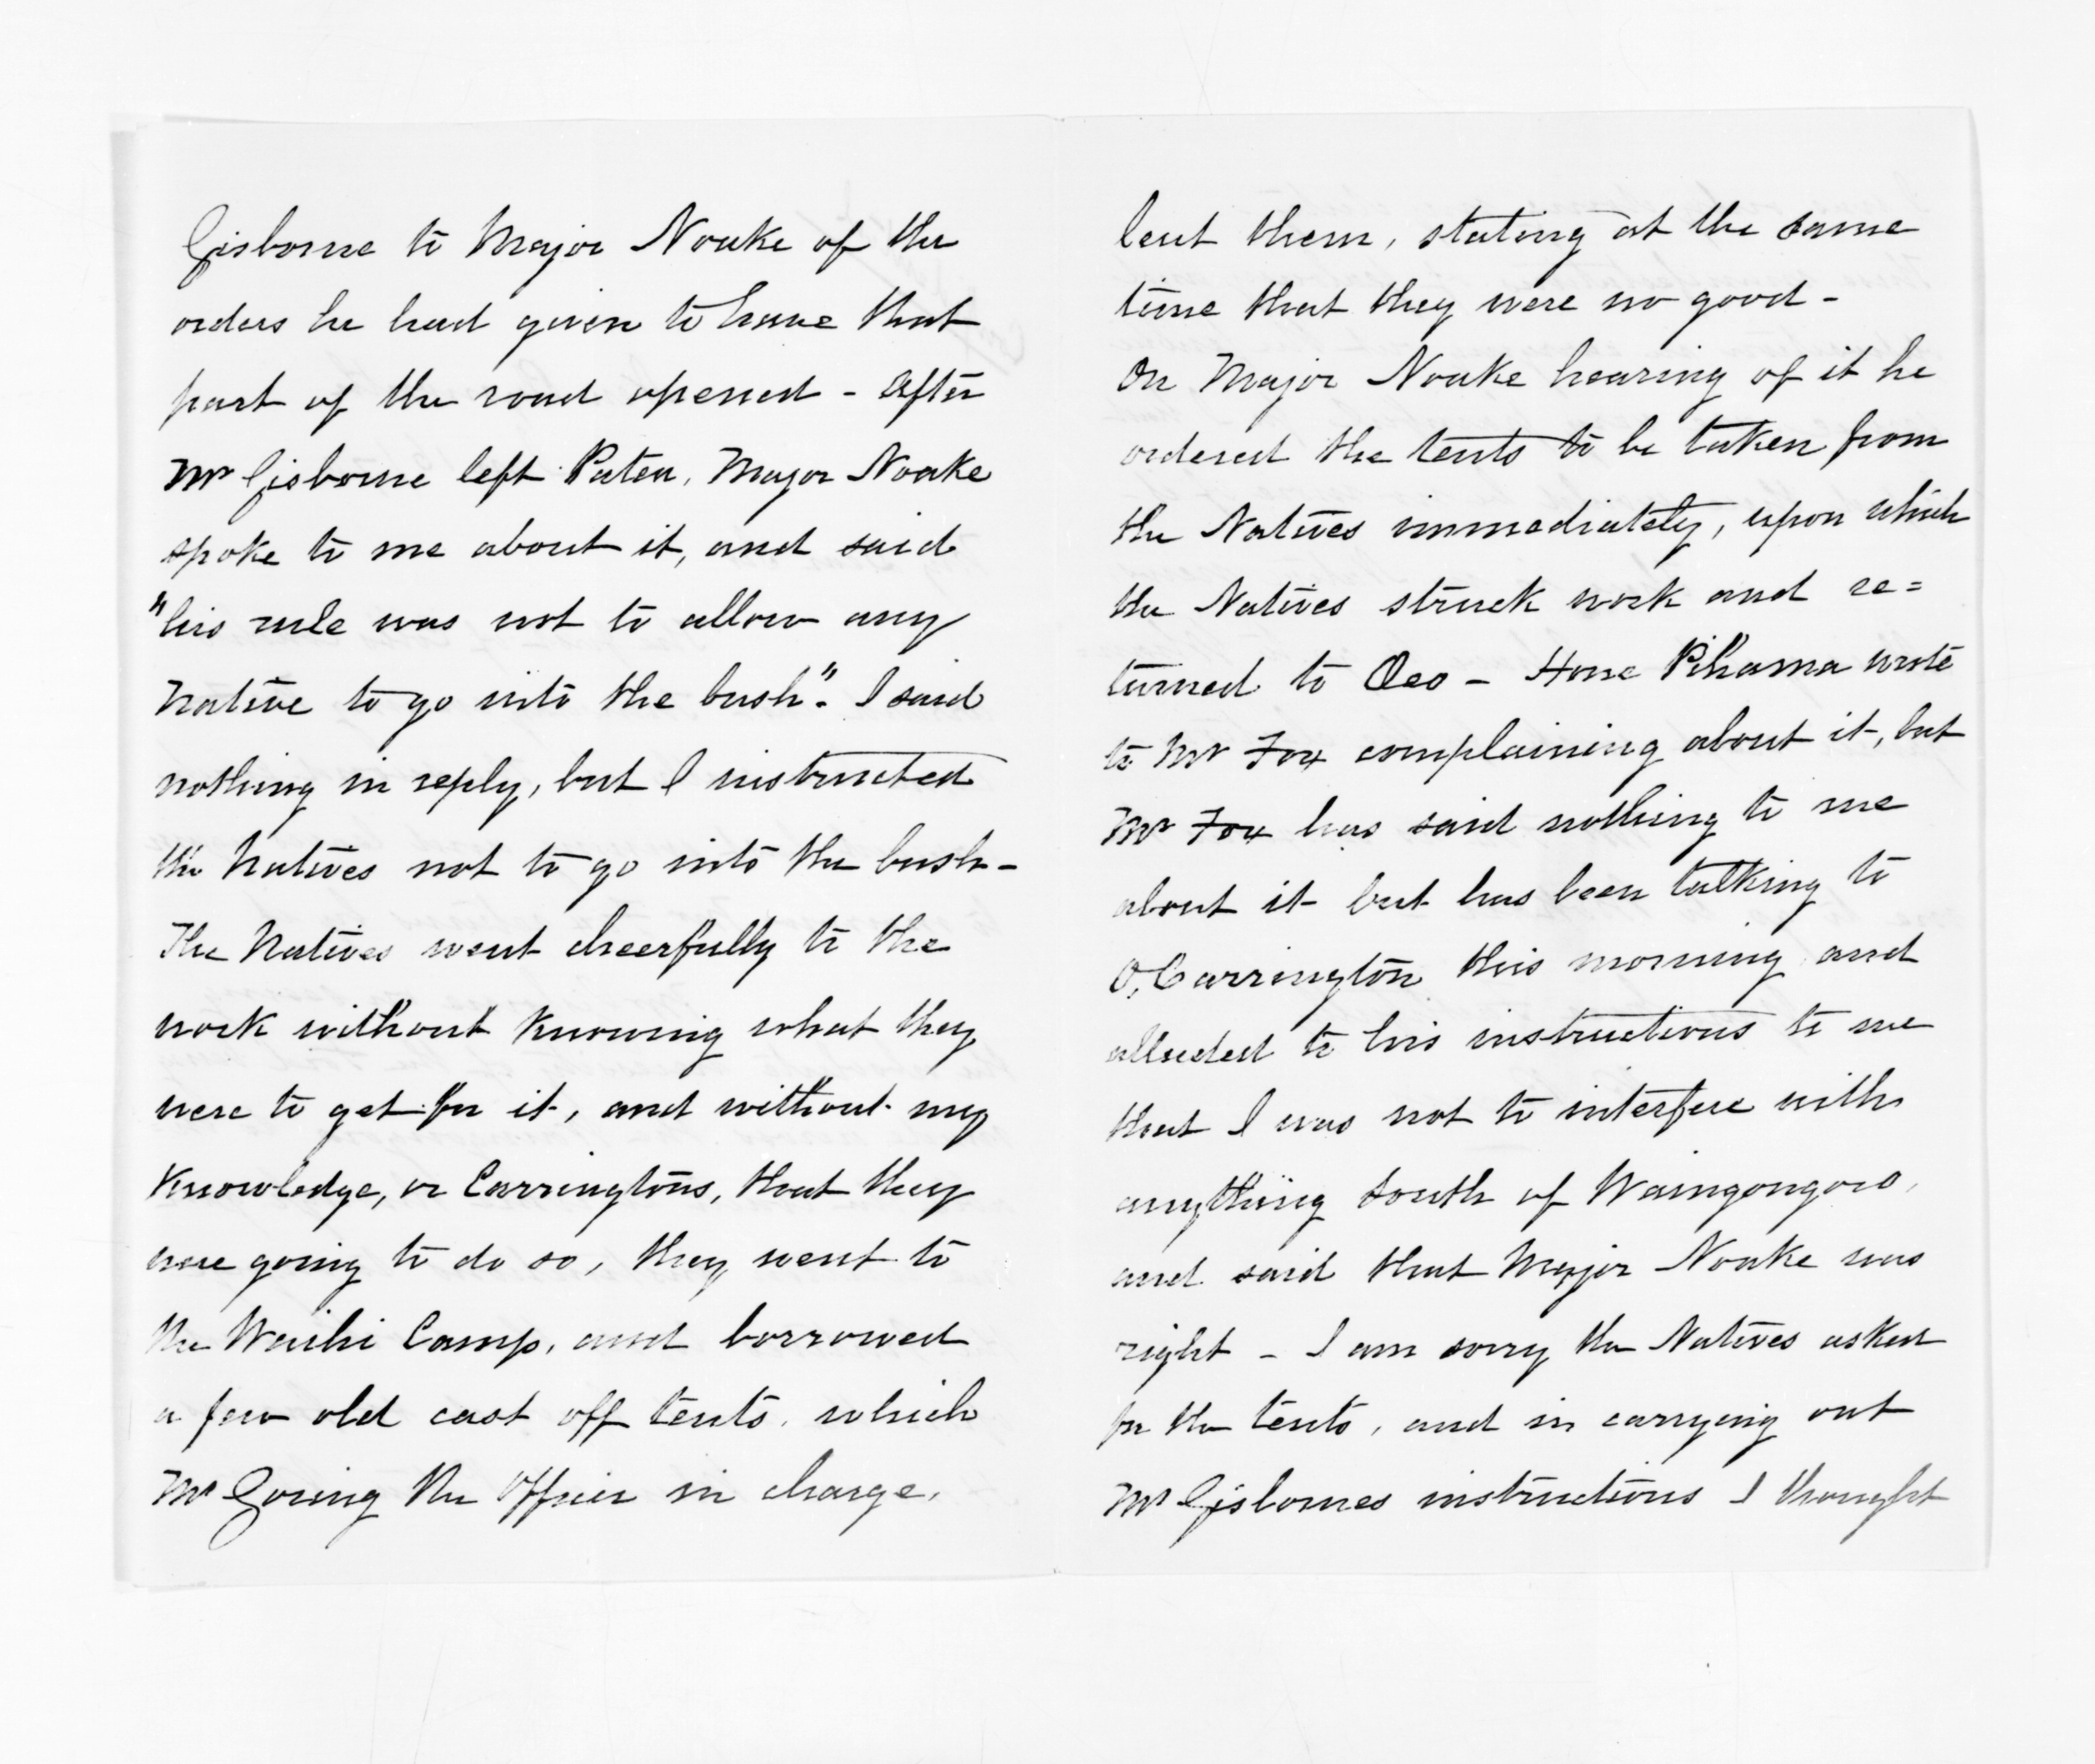 Gisborne to Major Noake of the
orders he had given to have that
part of the road opened - After
Mr Gisborne left Patea, Major Noake
spoke to me about it, and said
"his rule was not to allow any
Native to go into the bush". I said
nothing in reply, but I instructed
the Natives not to go into the bush -
The Natives went cheerfully to the
work without knowing what they
were to get for it, and without my
knowledge, or Carringtons, that they
were going to do so, they went to
the Waihi Camp, and borrowed
a few old cast off tents, which
Mr Goring the Officer in charge,
lent them, stating at the same
time that they were no good -
On Major Noake hearing of it he
ordered the tents to be taken from
the Natives immediately, upon which
the Natives struck work and re=
turned to Oeo - Hone Pihama wrote
to Mr Fox complaining about it, but
Mr Fox has said nothing to me
about it but has been talking to
O. Carrington this morning and
alluded to his instructions to me
that I was not to interfere with
anything South of Waingongoro,
and said that Major Noake was
right - I am sorry the Natives asked
for the tents, and in carrying out
Mr Gisbornes instructions I thought